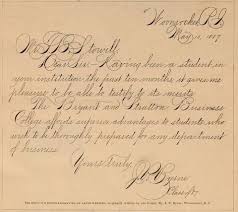 Woonsocket, R.I.
May 12, 1887
Mr. T. B. Stowell
Dear Sir:- Having been a student in
your institution the past ten months it gives me
pleasure to be able to testify to its merits.
The Bryant and Stratton Business
College affords superior advantages to students who
wish to be thoroughly prepared for any department
of business.
Yours Truly,
J. P. Byrne